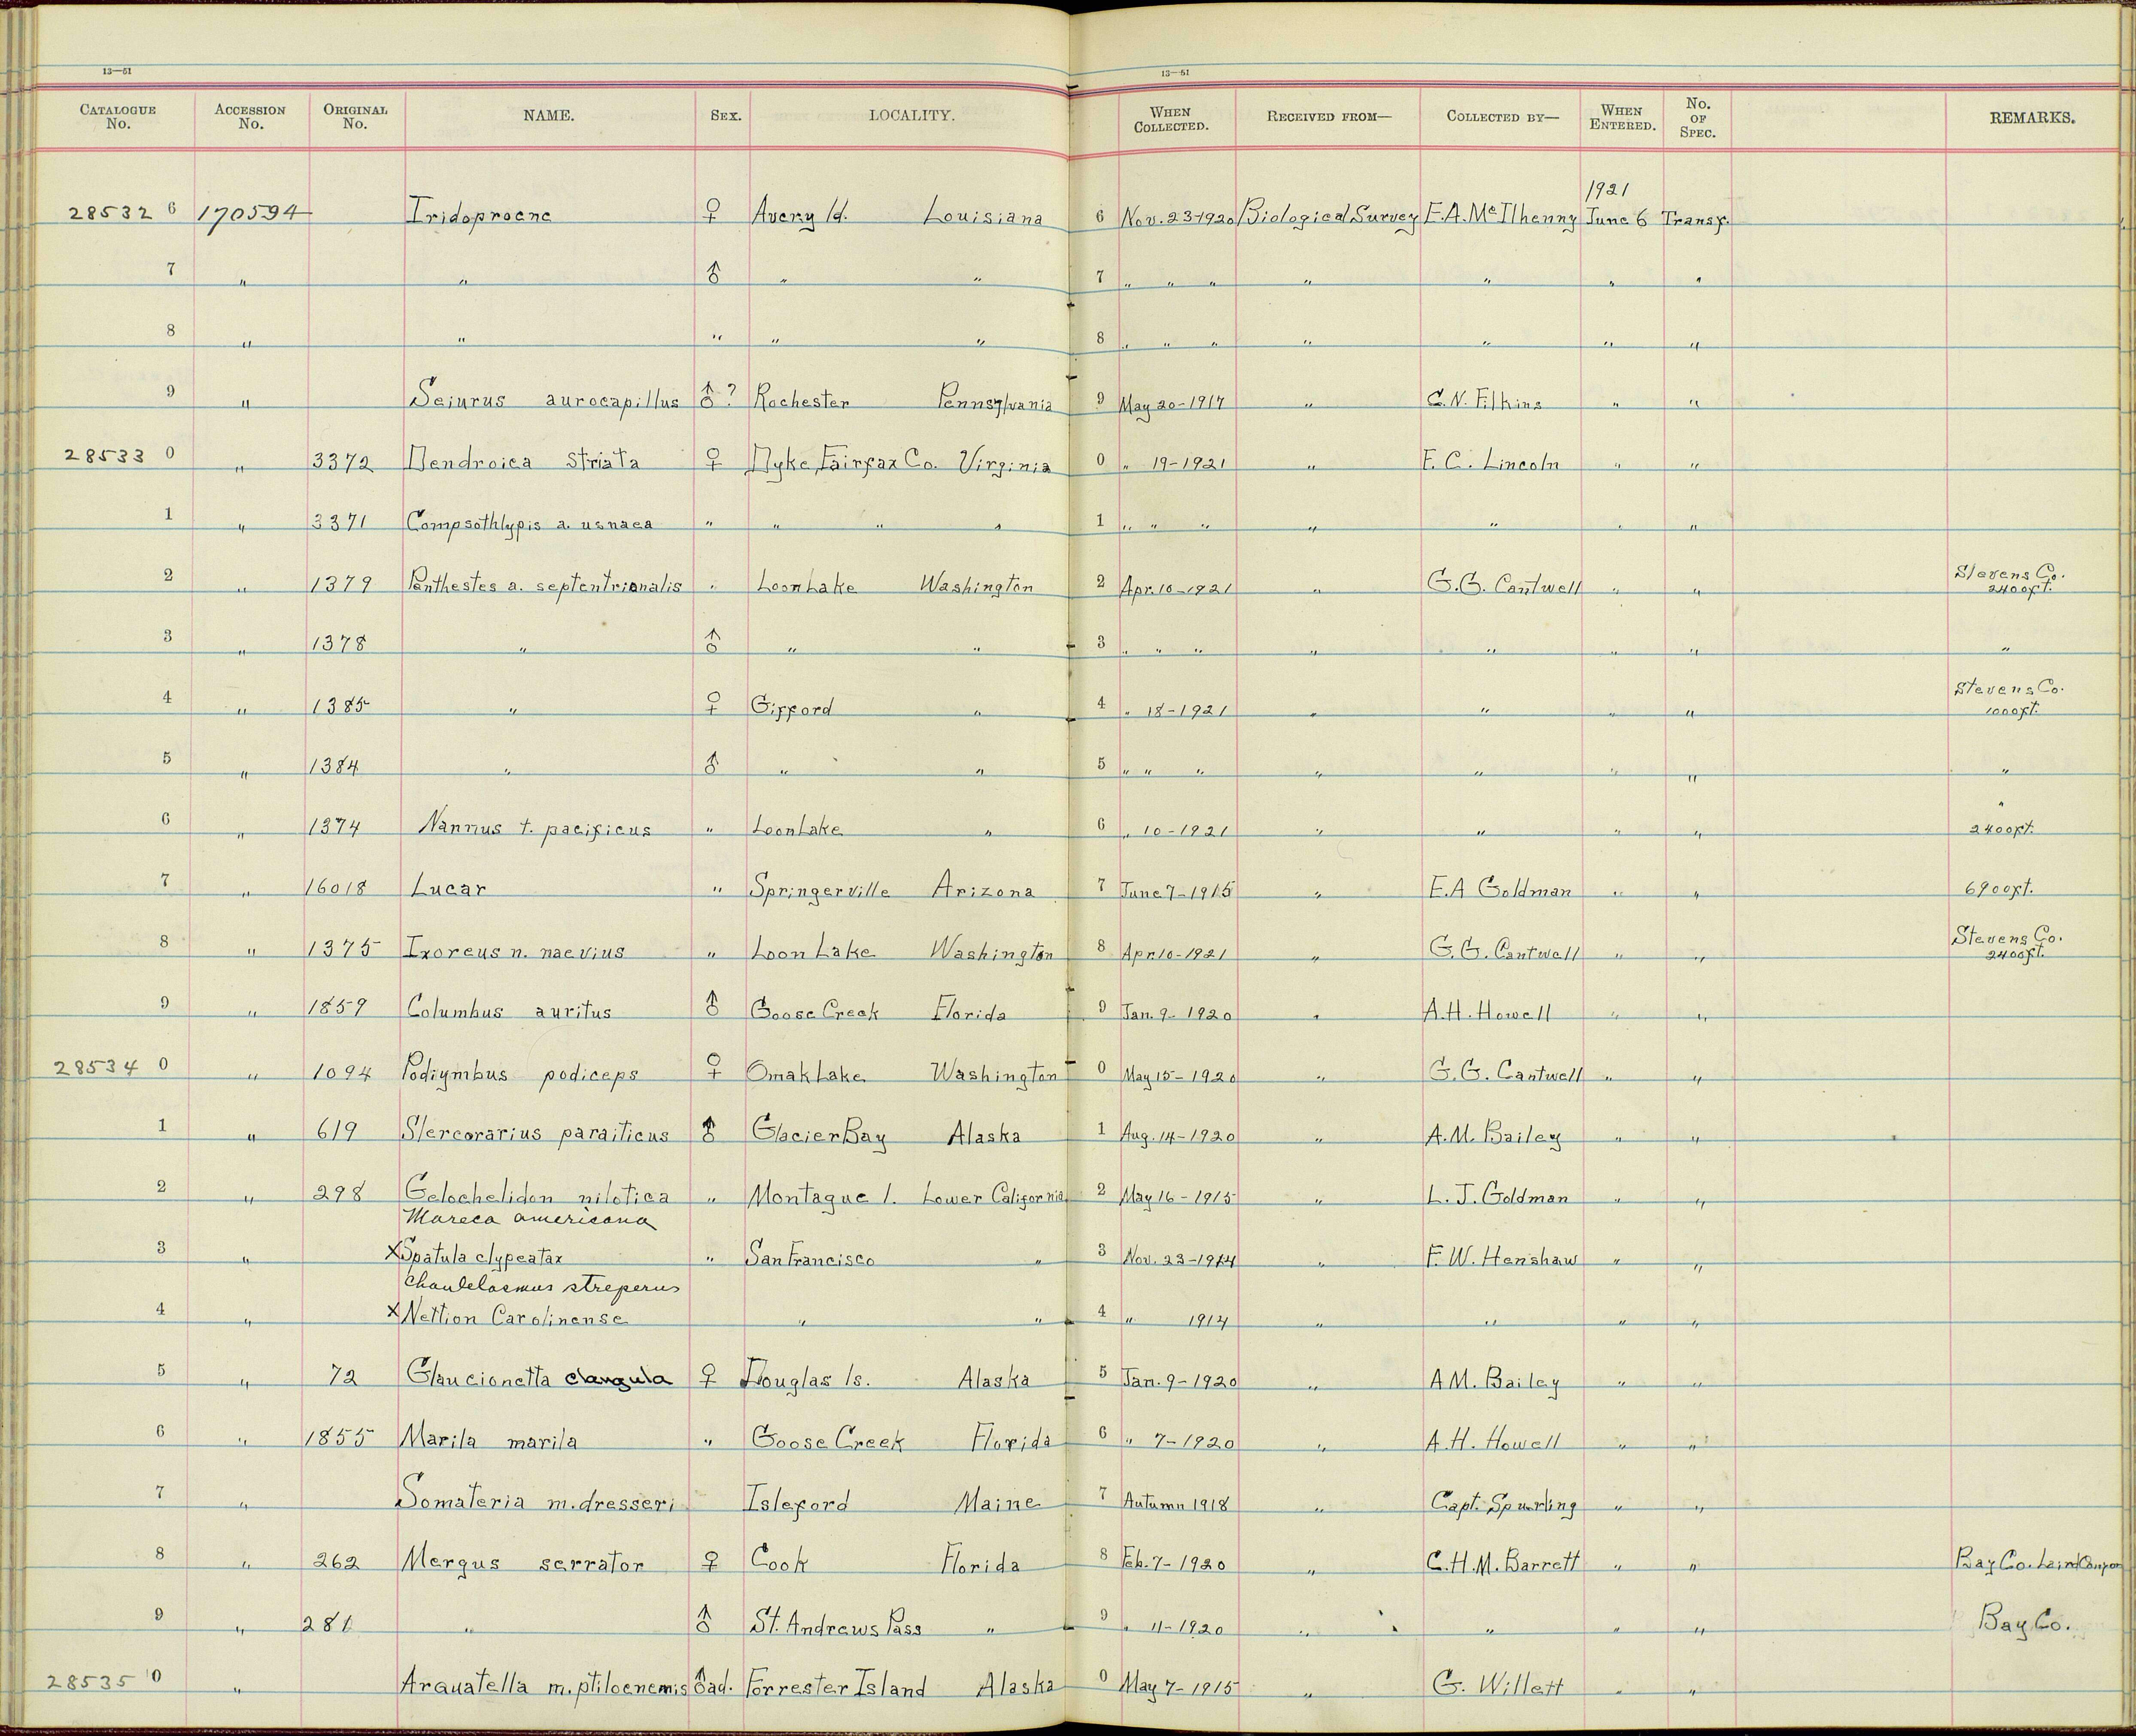 13—51 13—51
CATALOGUE No. ACCESSION No. ORIGINAL No. NAME. SEX. LOCALITY. WHEN COLLECTED. RECEIVED FROM— COLLECTED BY— WHEN ENTERED. No. OF SPEC. REMARKS.
1921
28532 6 170594 Iridoprocne ♀ Avery Id. Louisiana 6 Nov. 23-1920 Biological Survey E.A. McIlhenny June 6 Transf.
7 " " ♂ " " 7 " " " " " " "
8 " " " " " 8 " " " " " " "
9 " Seiurus aurocapillus ♂? Rochester Pennsylvania 9 May 20-1917 " C.N. Elkins " "
28533 0 " 3372 Dendroica striata ♀ Dyke, Fairfax Co. Virginia 0 " 19-1921 " F.C. Lincoln " "
1 " 3371 Compsothlypis a. usnaea " " " " 1 " " " " " " "
2 " 1379 Penthestes a. septentrionalis " Loon Lake Washington 2 Apr. 10-1921 " G.G. Cantwell " " Stevens Co. 2400ft.
3 " 1378 " ♂ " " 3 " " " " " " " "
4 " 1385 " ♀ Gifford " 4 " 18-1921 " " " " Stevens Co. 1000ft.
5 " 1384 " ♂ " " 5 " " " " " " " "
6 " 1374 Nannus t. pacificus " Loon Lake " 6 " 10-1921 " " " " " 2400ft.
7 " 16018 Lucar " Springerville Arizona 7 June 7-1915 " E.A Goldman " " 6900ft.
8 " 1375 Ixoreus n. naevius " Loon Lake Washington 8 Apr. 10-1921 " G.G. Cantwell " " Stevens Co. 2400ft.
9 " 1859 Columbus auritus ♂ Goose Creek Florida 9 Jan. 9-1920 " A.H. Howell " "
28534 0 " 1094 Podiymbus podiceps ♀ Omak Lake Washington 0 May 15-1920 " G.G. Cantwell " "
1 " 619 Stercorarius paraiticus ♂ Glacier Bay Alaska 1 Aug. 14-1920 " A.M. Bailey " "
2 " 298 Gelochelidon nilotica " Montague I. Lower California 2 May 16-1915 " L.J. Goldman " "
Mareca americana
3 " X Spatula clypeatax " San Francisco " 3 Nov. 23-1914 " F.W. Henshaw " "
Chaulelasmus streperus
4 " X Nettion Carolinense " " 4 " 1914 " " " "
5 " 72 Glaucionetta clangula ♀ Douglas Is. Alaska 5 Jan. 9-1920 " A.M. Bailey " "
6 " 1855 Marila marila " Goose Creek Florida 6 " 7-1920 " A.H. Howell " "
7 " Somateria m. dresseri Isleford Maine 7 Autumn 1918 " Capt. Spurling " "
8 " 262 Mergus serrator ♀ Cook Florida 8 Feb. 7-1920 " C.H.M. Barrett " " Bay Co.
9 " 281 " ♂ St. Andrews Pass " 9 " 11-1920 " " " " Bay Co.
28535 0 " Arquatella m. ptilocnemis ♂ad. Forrester Island Alaska 0 May 7-1915 " G. Willett " "